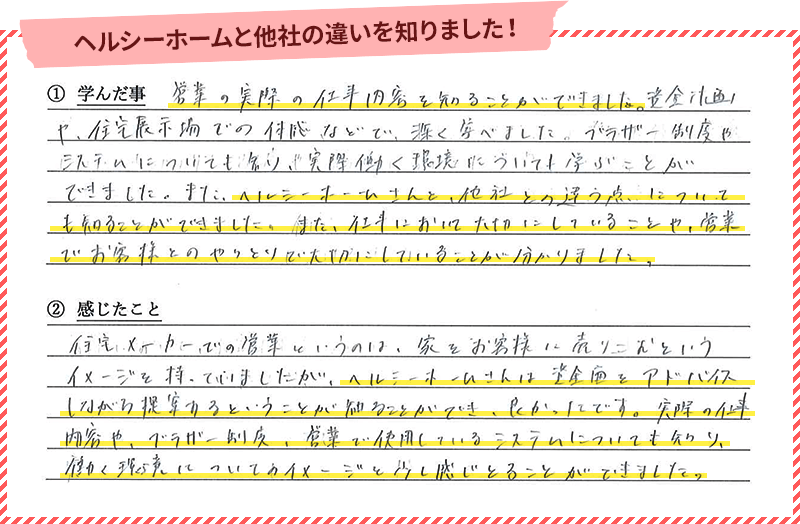 ヘルシーホームと他社の違いを知りました！
① 学んだ事 営業の実際の仕事内容を知ることができました。資金計画
や、住宅展示場での体感などで、深く学べました。ブラザー制度や
システムについても知り、実際働く環境についても学ぶことが
できました。また、ヘルシーホームさんと、他社との違う点についても
も知ることができました。また、仕事において大切にしていることや、営業
でお客様とのやりとりで大切にしていることが分かりました。
② 感じたこと
住宅メーカーでの営業というのは、家をお客様に売りこむという
イメージを持っていましたが、ヘルシーホームさんは資金面をアドバイス
しながら提案するということが知ることができ、良かったです。実際の仕事
内容や、ブラザー制度、営業で使用しているシステムについても知り、
働く環境についてのイメージを少し感じとることができました。